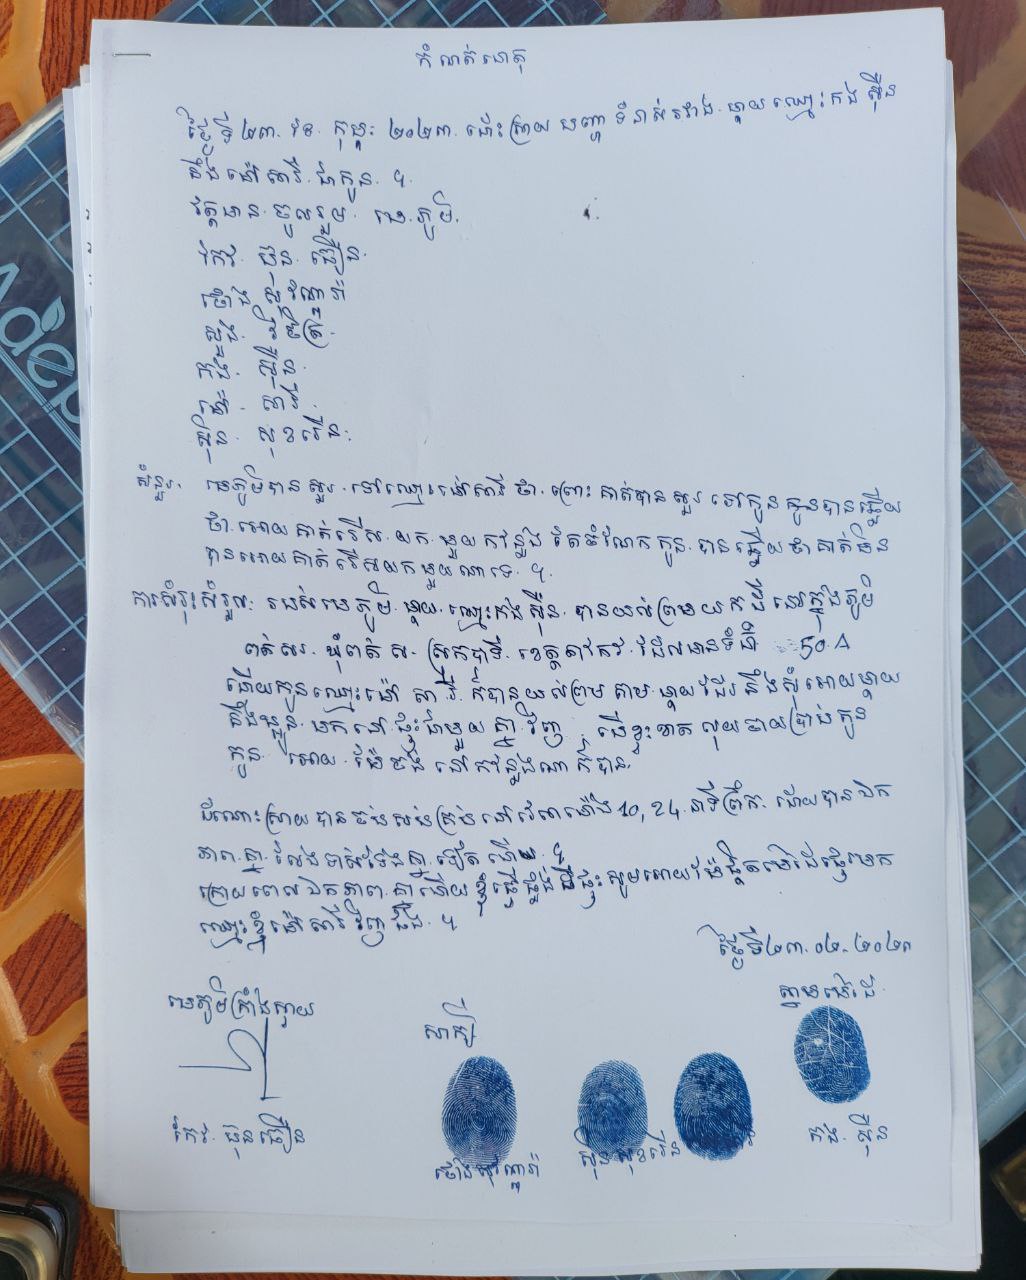 កំណត់ហេតុ
ថ្ងៃទី ២៣. ខែ. កុម្ភៈ ២០២៣. ដោះស្រាយ បញ្ហា ទំនាស់ រវាង. ម្តាយ ឈ្មោះ កង ស៊ីន
នឹង ម៉ៅ សារី. ជាកូន. ។
វត្តមាន. ចូលរួម. មេភូមិ.
កែវ. ធុន. ធឿន.
ថោង សុវណ្ណរ៉ា
កង. ស៊ីន.
ម៉ៅ. សារី.
ស៊ិន. សុខវើន.
សំនួរ. មេភូមិបាន សួរ. ទៅឈ្មោះ ម៉ៅសារី ថា. ព្រោះ គាត់បាន សួរ ទៅកូន កូនបានឆ្លើយ
ថា. អោយ គាត់រើស. យក. មួយ កន្លែង តែចំណែក កូន. បានឆ្លើយ ថា គាត់មិន
បានអោយ គាត់ រើសយក មួយណាទេ. ។
ការសំរុះសំរួល. របស់មេភូមិ. ម្តាយ. ឈ្មោះកង ស៊ីន. បានយល់ព្រមយក ដី នៅក្នុងភូមិ
ពត់សរ. ឃុំពត់ ស. ស្រុកបាទី. ខេត្តតាកែវ. ដែលមានទំហំ 50. A
ហើយកូនឈ្មោះ ម៉ៅ សារី. ក៏បានយល់ព្រម តាម. ម្តាយ ដែរ នឹងសុំអោយម្តាយ
នឹងប្អូន. មក នៅ. ផ្ទះ ជាមួយ គ្នា វិញ. បើខ្វះខាត លុយ ចាយប្រាប់ កូន
កូន. អោយ. ម៉ែ ចង់ នៅ កន្លែងណា ក៏បាន.
ដំណោះស្រាយ បានចប់សព្វគ្រប់ នៅវេលាម៉ោង 10, 24. នាទីព្រឹក. ដោយបានឯក
ភាព. គ្នា. លែងទាស់ទែងគ្នា. ទៀត ហើយ. ។
ក្រោយពេល ឯកភាព. គ្នាហើយ ខ្ញុំ ធ្វើ ប្លង់ ដី ផ្ទះ សូមអោយ ម៉ែផ្តិតមេដៃផ្ទេរមក
ឈ្មោះ ខ្ញុំ ម៉ៅ សារី វិញ ផង. ។
ថ្ងៃទី២៣. ០២. ២០២៣
មេភូមិត្រាំងស្វាយ
សាក្សី
ស្នាមមេដៃ.
កែវ. ធុនធឿន
ថោងសុវណ្ណរ៉ា
ស៊ិន សុខវើន
កង. ស៊ីន